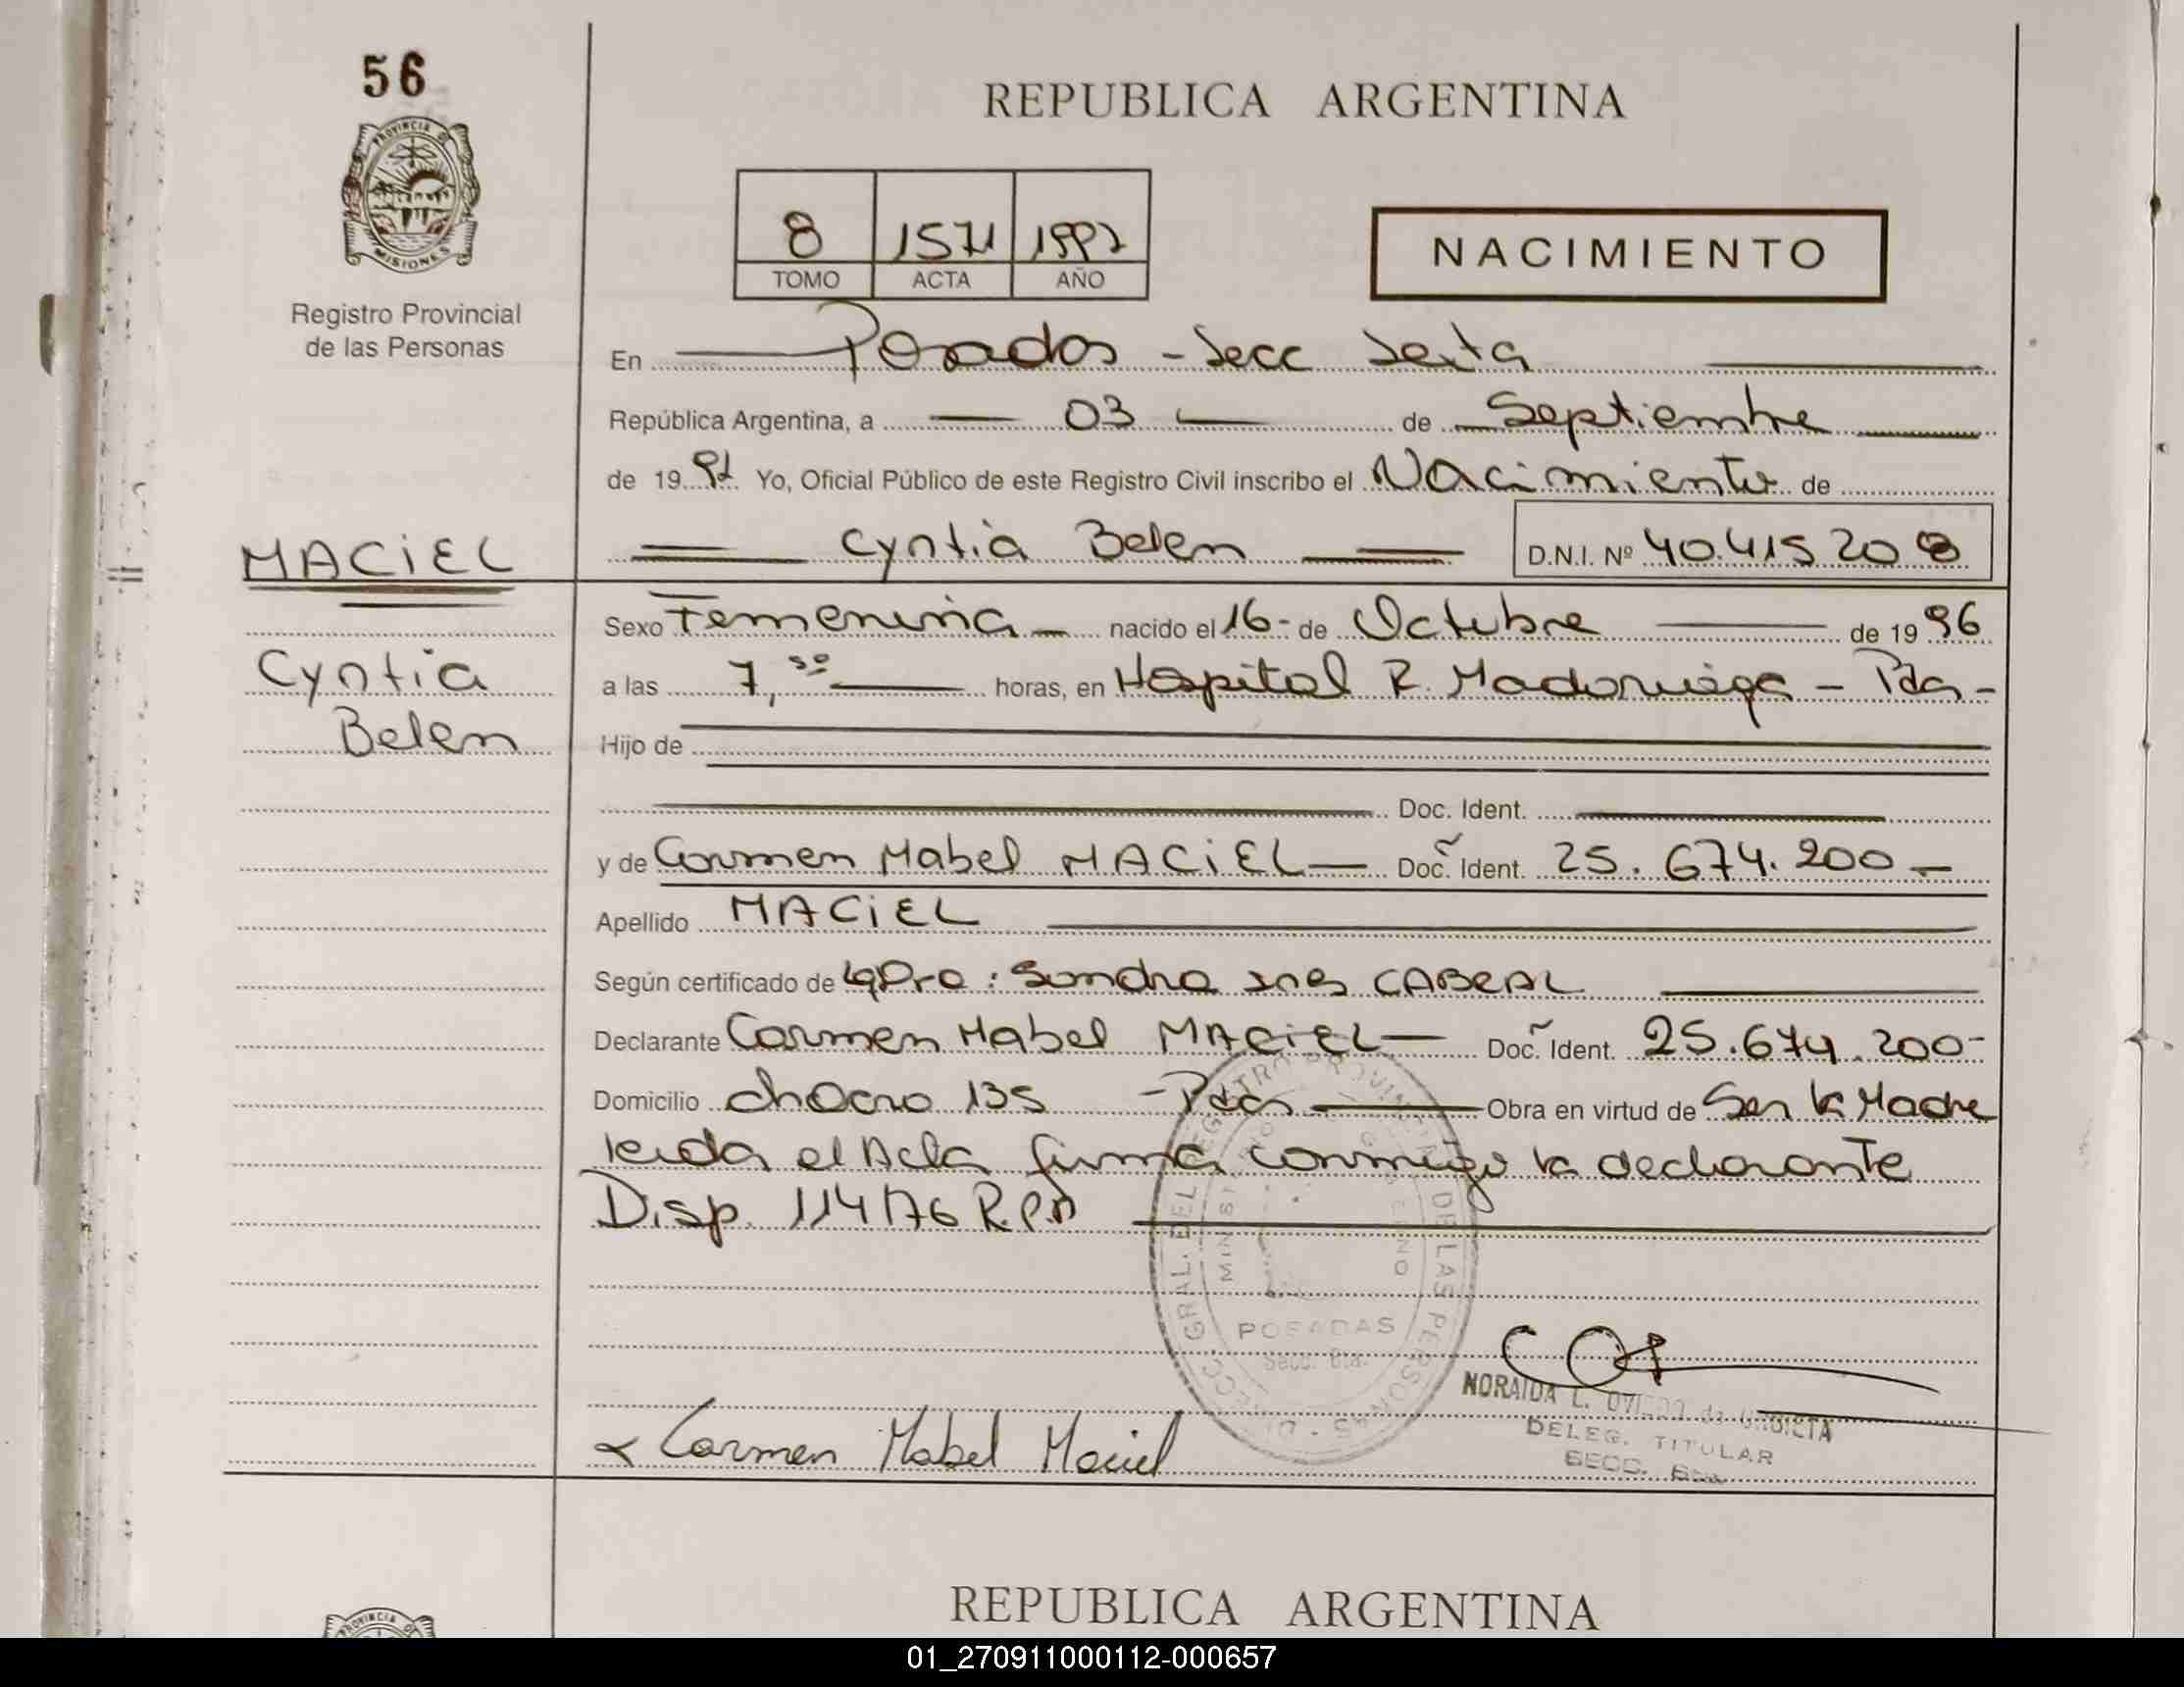 56
REPUBLICA ARGENTINA
PROVINCIA D
MISIONES
8 1571 1997
TOMO ACTA AÑO
NACIMIENTO
Registro Provincial
de las Personas
En Posadas - Secc Sexta
República Argentina, a 03 de Septiembre
de 1997 Yo, Oficial Público de este Registro Civil inscribo el Nacimiento de
MACIEL
Cyntia Belen D.N.I. Nº 40.415 208
Cyntia
Belen
Sexo Femenina nacido el 16- de Octubre de 1996
a las 7, horas, en Hospital R. Madariaga - Pdas-
Hijo de
Doc. Ident.
y de Carmen Mabel MACIEL Doc. Ident. 25.674.200
Apellido MACIEL
Según certificado de : Sandra Ines CABRAL
Declarante Carmen Mabel MACIEL Doc. Ident. 25.674.200-
Domicilio chaco 135 - Pdas Obra en virtud de Ser la Madre
leida el Acta firma conmigo la declarante
Disp. 114/76 R.P.P
DIRECC. GRAL. DEL REGISTRO PROVINCIAL DE LAS PERSONAS
POSADAS
Secc. 6ta.
NORAIDA L. OVIEDO de URBIETA
DELEG. TITULAR
SECC. 6ta
Carmen Mabel Maciel
REPUBLICA ARGENTINA
PROVINCIA
01_270911000112-000657